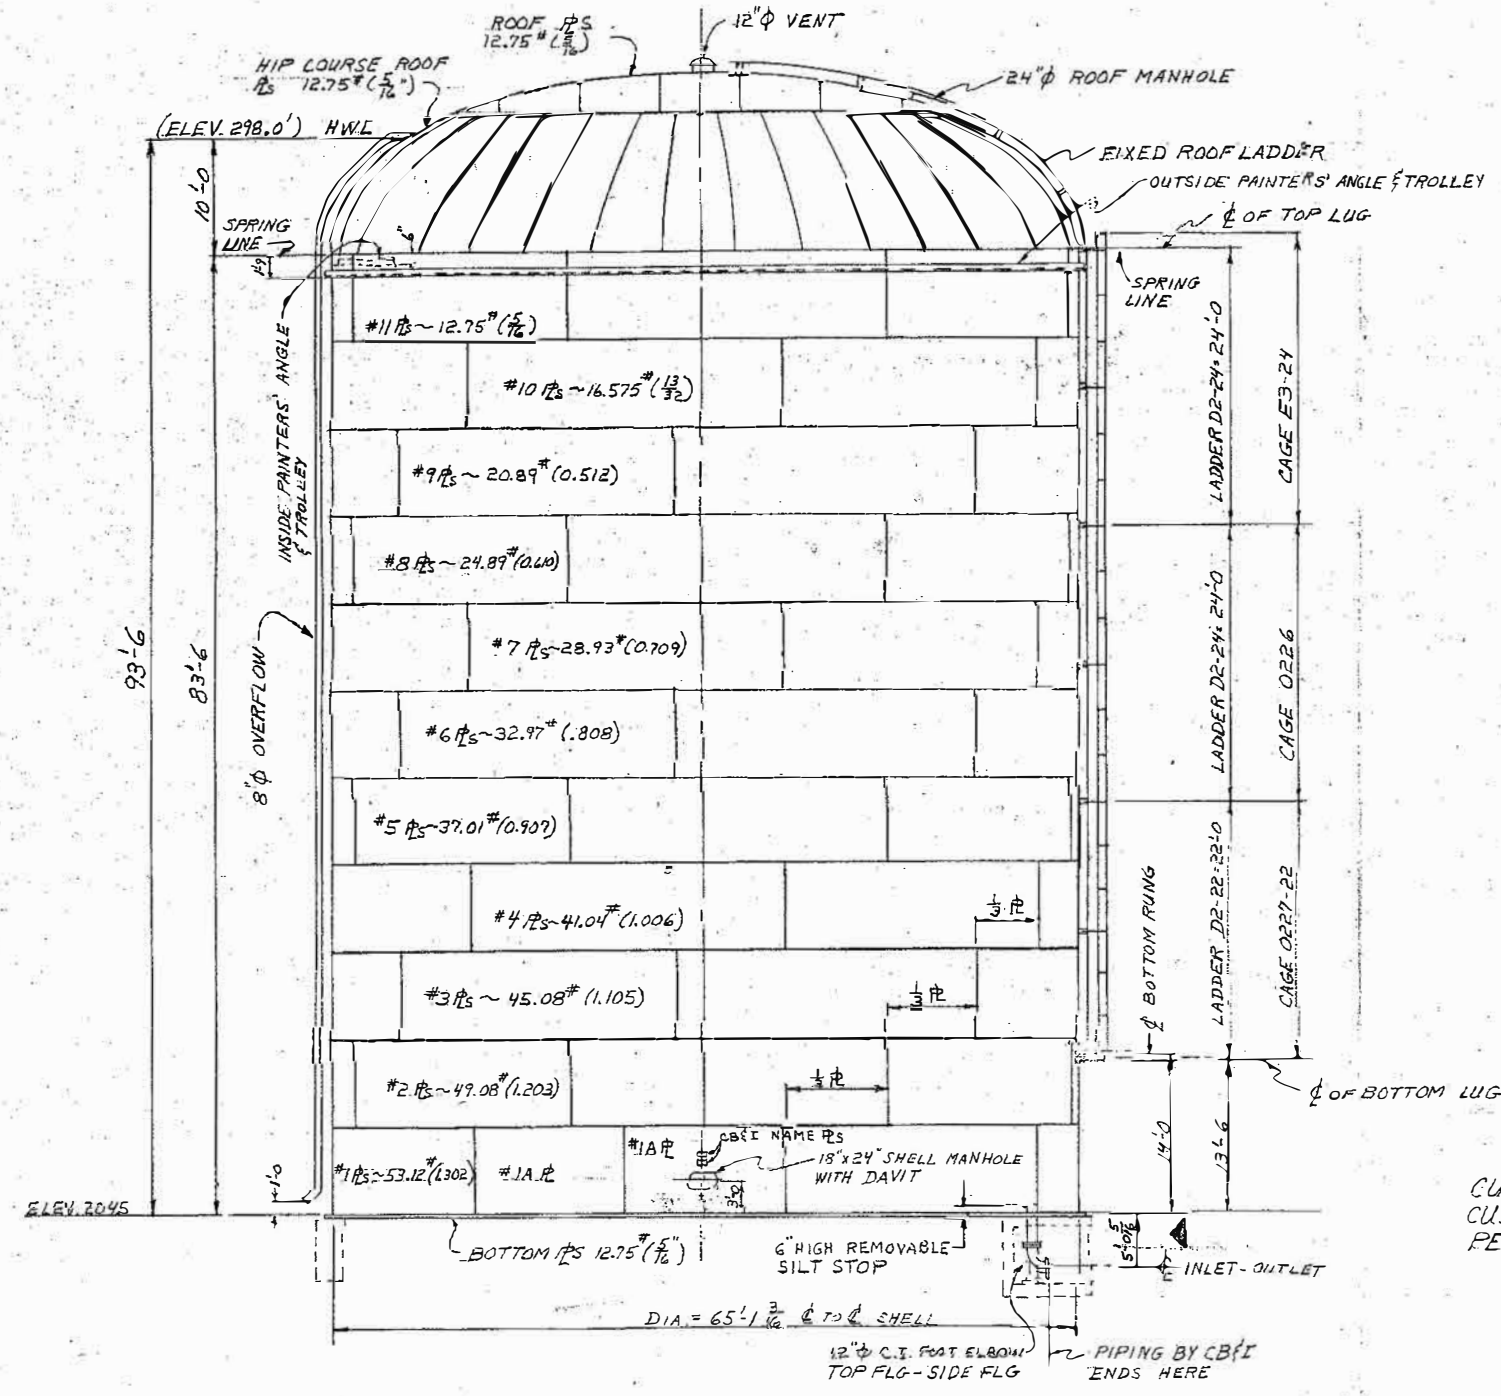 ROOF ℙLS
12.75# (5/16)
12"φ VENT
HIP COURSE ROOF
ℙLs 12.75# (5/16")
24"φ ROOF MANHOLE
(ELEV. 298.0') HWL
FIXED ROOF LADDER
OUTSIDE PAINTERS' ANGLE & TROLLEY
℄ OF TOP LUG
10'-0
SPRING
LINE
6"
1'-9
SPRING
LINE
INSIDE PAINTERS' ANGLE
& TROLLEY
#11 ℙLs ~ 12.75# (5/16)
#10 ℙLs ~ 16.575# (13/32)
#9 ℙLs ~ 20.89# (0.512)
#8 ℙLs ~ 24.89# (0.610)
#7 ℙLs ~ 28.93# (0.709)
#6 ℙLs ~ 32.97# (.808)
#5 ℙLs ~ 37.01# (0.907)
#4 ℙLs ~ 41.04# (1.006)
1/3 ℙL
#3 ℙLs ~ 45.08# (1.105)
1/3 ℙL
#2 ℙLs ~ 49.08# (1.203)
1/3 ℙL
#1 ℙLs ~ 53.12# (1.302)
#1A ℙL
#1A ℙL
CB&I NAME ℙLS
18"x24" SHELL MANHOLE
WITH DAVIT
93'-6
83'-6
8"φ OVERFLOW
LADDER D2-24 = 24'-0
CAGE E3-24
LADDER D2-24 = 24'-0
CAGE 0226
LADDER D2-22 = 22'-0
CAGE 0227-22
℄ BOTTOM RUNG
℄ OF BOTTOM LUG
14'-0
13'-6
1'-0
ELEV. 204.5
BOTTOM ℙLS 12.75# (5/16")
6" HIGH REMOVABLE
SILT STOP
℄ INLET-OUTLET
DIA. = 65'-1 3/16 ℄ TO ℄ SHELL
12"φ C.I. FOOT ELBOW
TOP FLG - SIDE FLG
PIPING BY CB&I
ENDS HERE